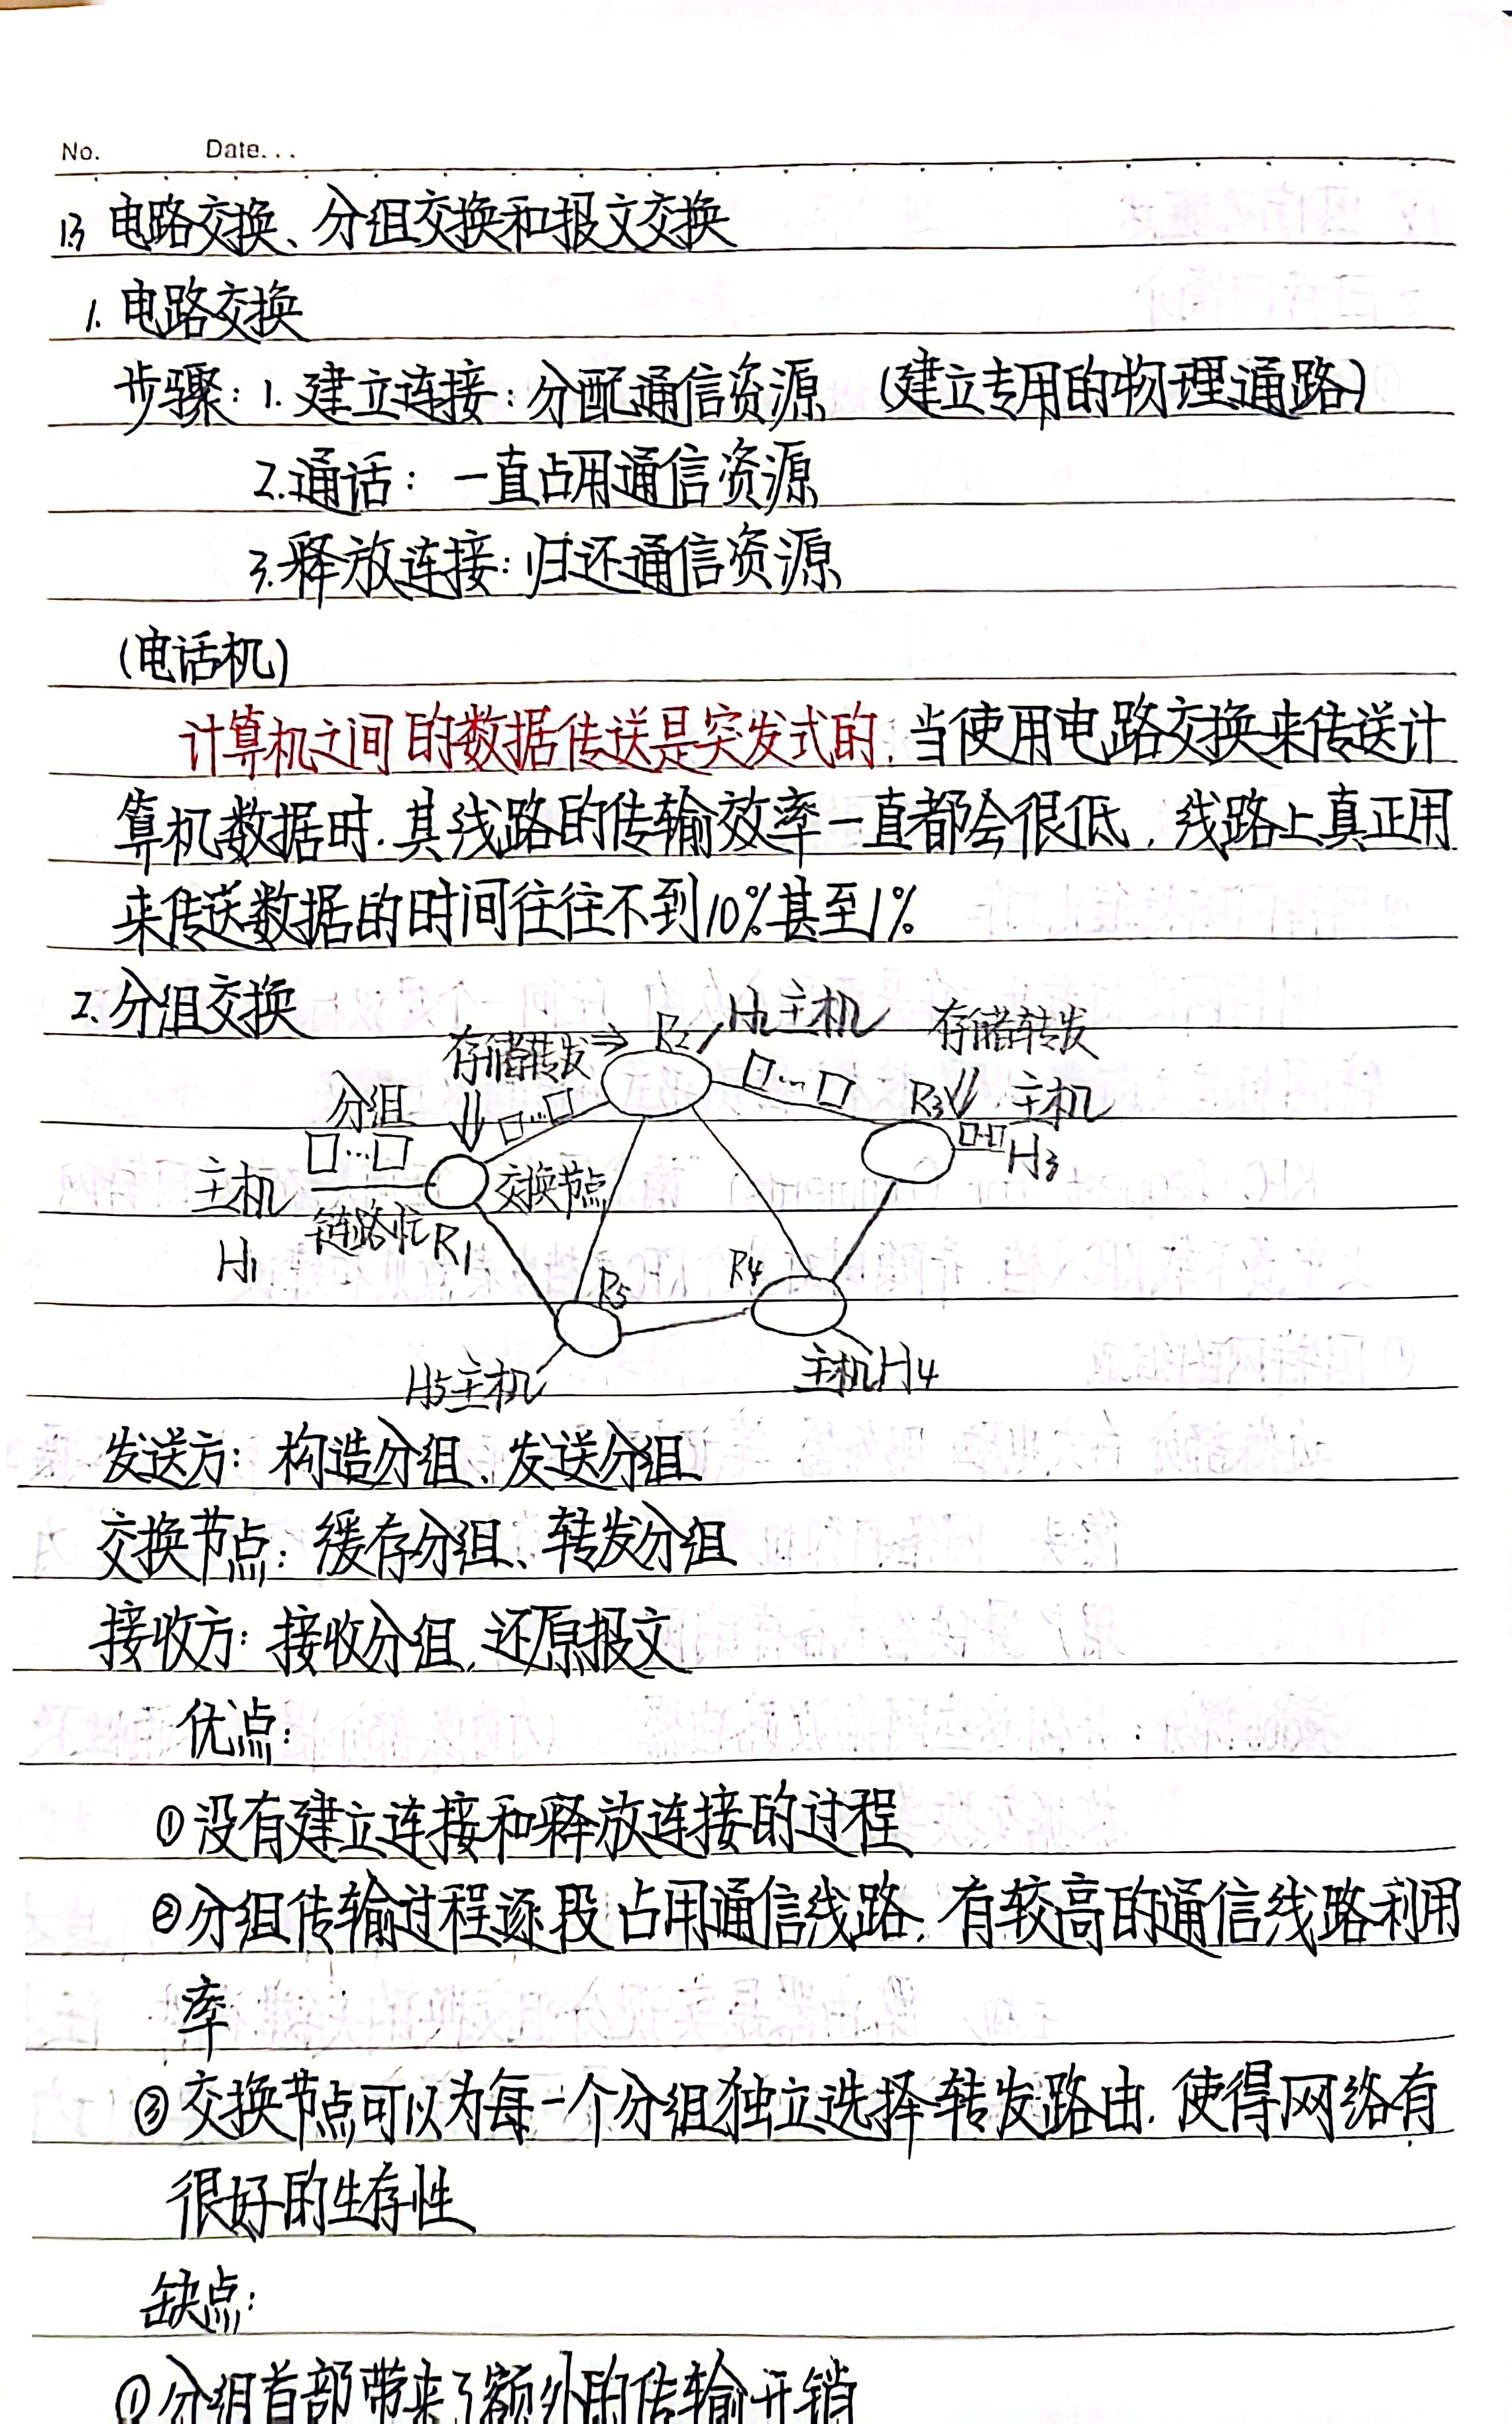 No. Date...
1.3 电路交换、分组交换和报文交换
1. 电路交换
步骤：1. 建立连接：分配通信资源 (建立专用的物理通路)
2.通话：一直占用通信资源
3.释放连接：归还通信资源
(电话机)
计算机之间的数据传送是突发式的，当使用电路交换来传送计
算机数据时，其线路的传输效率一直都会很低，线路上真正用
来传送数据的时间往往不到10%甚至1%
2. 分组交换
R2 H2主机 存储转发
存储转发⇒
分组 R3 主机
H3
主机 交换节点
链路忙 R1
H1
R5 R4
H5主机 主机H4
发送方：构造分组、发送分组
交换节点：缓存分组、转发分组
接收方：接收分组，还原报文
优点：
①没有建立连接和释放连接的过程
②分组传输过程逐段占用通信线路，有较高的通信线路利用
率
③交换节点可以为每一个分组独立选择转发路由，使得网络有
很好的生存性
缺点：
①分组首部带来了额外的传输开销